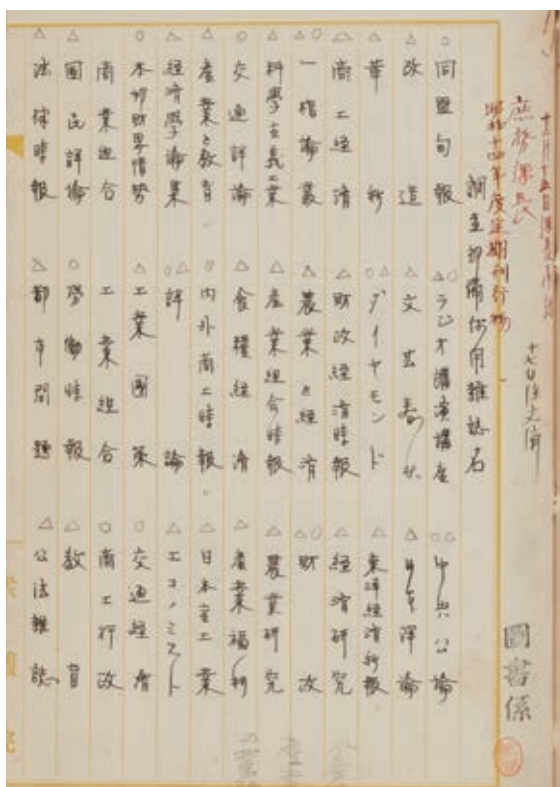 庶務課長
昭和十四年度定期刊行物
調査部備付用雑誌名
圖書係
○ 同盟旬報
△○ ラジオ講演講座
○△ 中央公論
△ 改造
△ 文芸春秋
△ 日本評論
△ 革新
○△ ダイヤモンド
△ 東洋経済新報
△ 商工経済
△ 財政経済時報
△ 経済研究
△○ 一橋論叢
△ 農業と経済
△○ 財政
△ 科學主義工業
△ 産業組合時報
△ 農業研究
○ 交通評論
△ 食糧経済
△ 産業福利
△ 産業と教育
○ 内外商工時報
△ 日本工業
△ 経済學論集
○△ 評論
△ エコノミスト
○ 本邦財界情勢
△ 工業國策
○ 交通経済
商業組合
工業組合
○ 商工行政
△ 國民評論
○ 労働時報
△ 教育
△ 法律時報
△ 都市問題
△ 公法雑誌